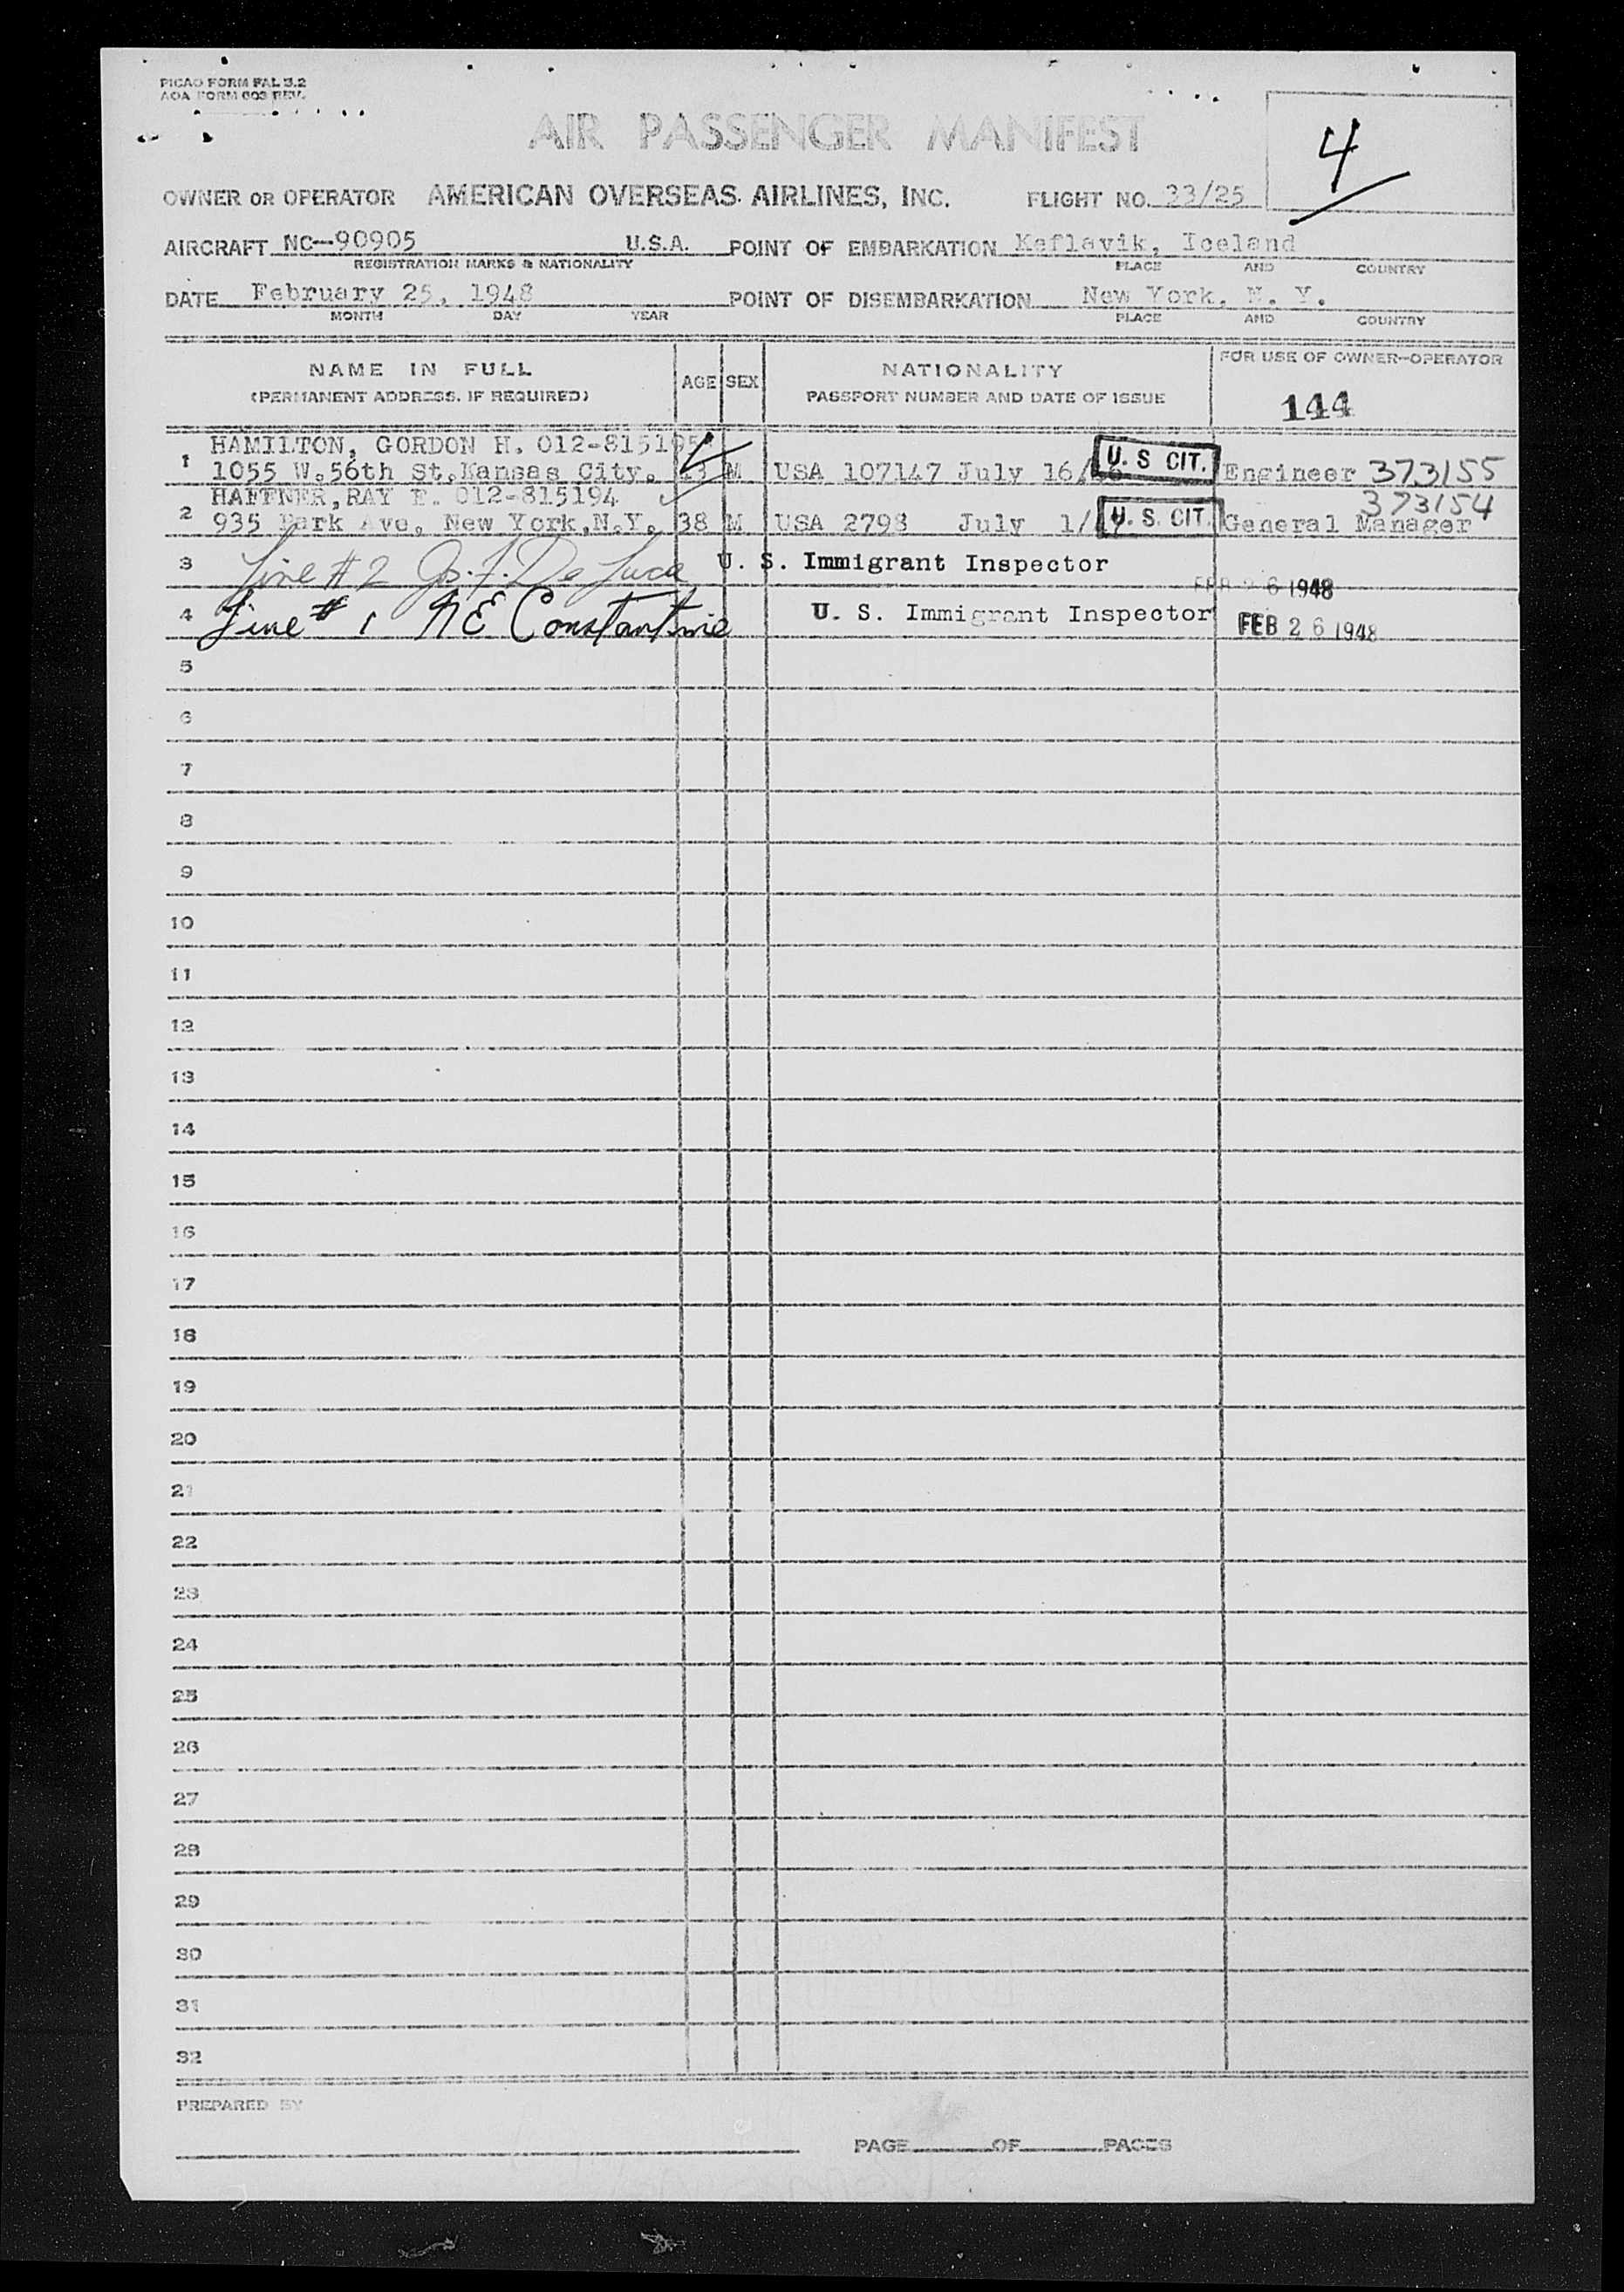 PICAO FORM FAL 3.2
AOA FORM 603 REV.
AIR PASSENGER MANIFEST
4
OWNER OR OPERATOR AMERICAN OVERSEAS AIRLINES, INC. FLIGHT NO. 33/25
AIRCRAFT NC-90905 U.S.A. POINT OF EMBARKATION Keflavik, Iceland
REGISTRATION MARKS & NATIONALITY PLACE AND COUNTRY
DATE February 25, 1948 POINT OF DISEMBARKATION New York, N. Y.
MONTH DAY YEAR PLACE AND COUNTRY
NAME IN FULL AGE SEX NATIONALITY FOR USE OF OWNER-OPERATOR
(PERMANENT ADDRESS, IF REQUIRED) PASSPORT NUMBER AND DATE OF ISSUE 144
HAMILTON, GORDON H. 012-815195
1 1055 W.56th St,Kansas City. M USA 107147 July U. S CIT. Engineer 373155
HAFFNER,RAY 012-815194 373154
2 935 Park Ave, New York,N.Y. 38 M USA 2798 July U. S. CIT. General Manager
3 Line # 2 Jos. F. De Luca U. S. Immigrant Inspector
FEB 26 1948
4 Line # 1 NE Constantine U. S. Immigrant Inspector FEB 26 1948
5
6
7
8
9
10
11
12
13
14
15
16
17
18
19
20
21
22
23
24
25
26
27
28
29
30
31
32
PREPARED BY
PAGE OF PAGES